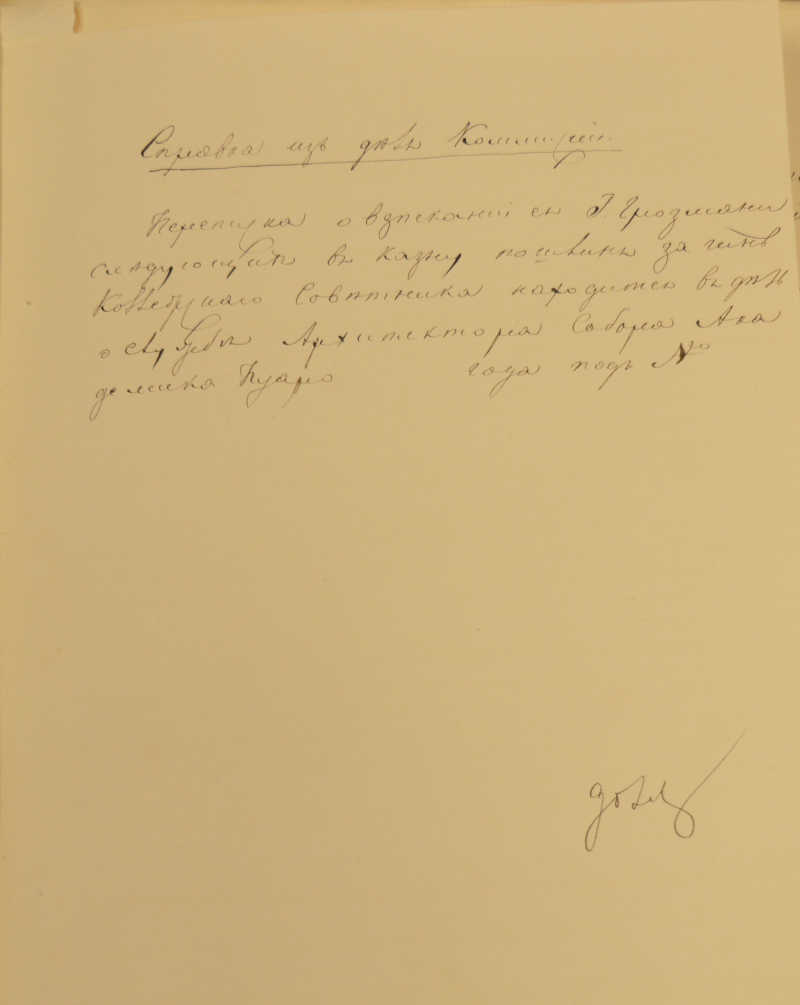 Справка изъ дѣлъ Коммисіи.
Переписка о взысканіи съ Г. Гросмани
слѣдующихъ въ казну пошлинъ за чинъ
Коллежскаго Совѣтника находится въ дѣлѣ
о службѣ Архитектора Собора Ака
демика Пуаро года подъ №